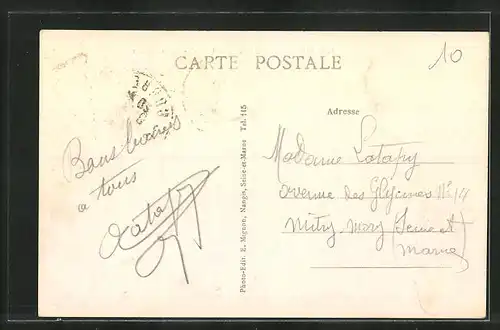 CARTE POSTALE
10
Adresse
Bons baisers
a tous
Latapy
Photo-Edit. E. Mignon, Nangis, Seine-et-Marne Tel. 115
Madame Latapy
avenue des Glycines N° 14
Mitry-Mory (Seine et
Marne)